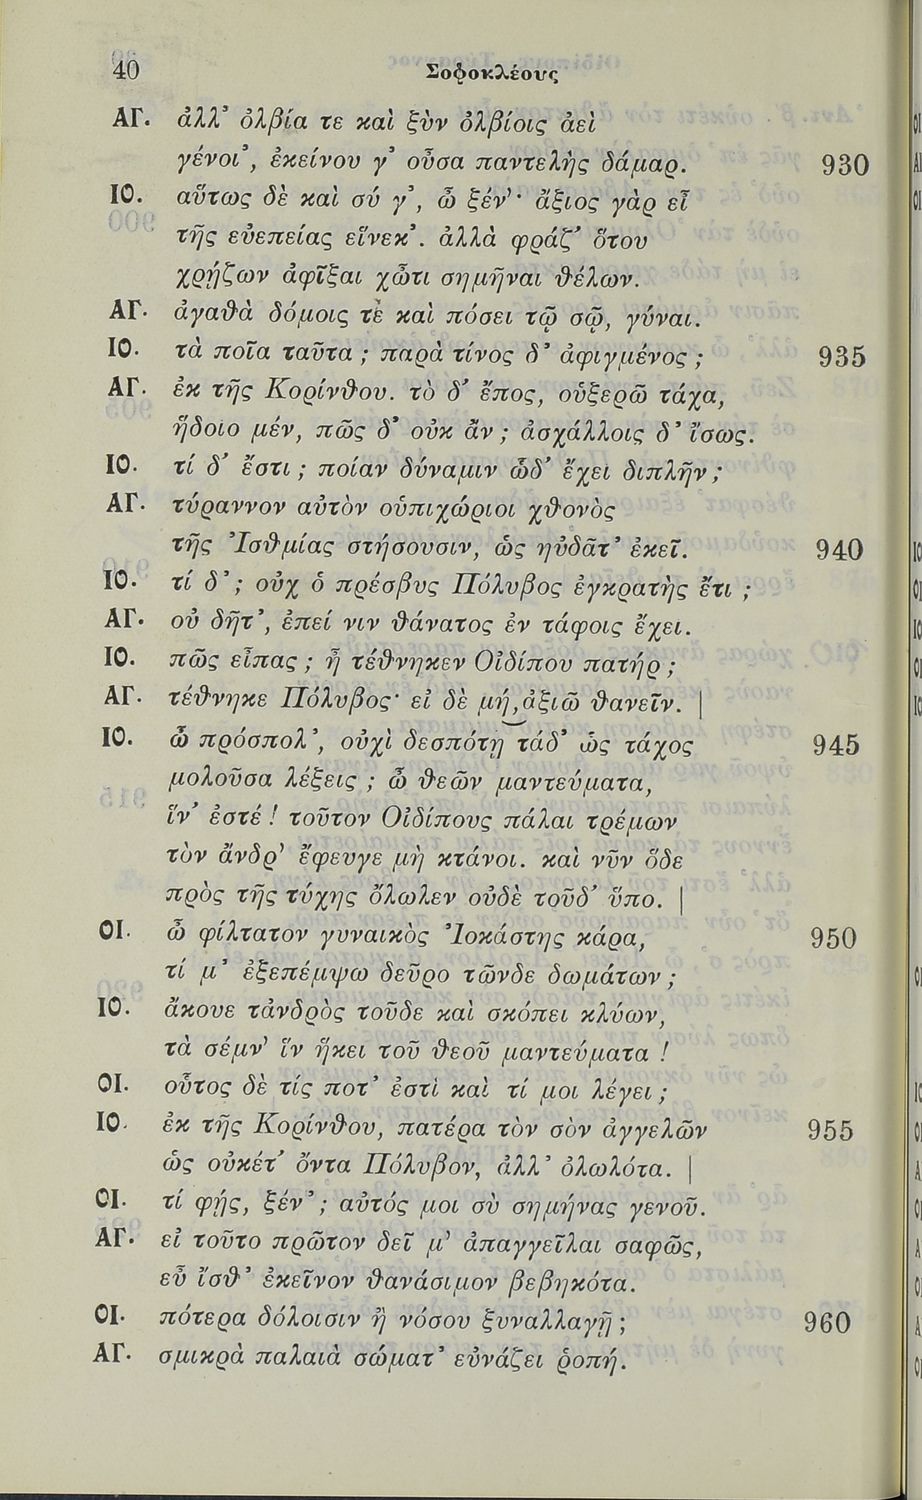 40 Σοφοκλέους
ΑΓ. ἀλλ' ὀλβία τε καὶ ξὺν ὀλβίοις ἀεὶ
γένοι', ἐκείνου γ' οὖσα παντελὴς δάμαρ. 930
ΙΟ. αὔτως δὲ καὶ σύ γ', ὦ ξέν'· ἄξιος γὰρ εἶ
τῆς εὐεπείας εἵνεκ'. ἀλλὰ φράζ' ὅτου
χρῄζων ἀφῖξαι χὦτι σημῆναι θέλων.
ΑΓ. ἀγαθὰ δόμοις τε καὶ πόσει τῷ σῷ, γύναι.
ΙΟ. τὰ ποῖα ταῦτα; παρὰ τίνος δ' ἀφιγμένος; 935
ΑΓ. ἐκ τῆς Κορίνθου. τὸ δ' ἔπος, οὑξερῶ τάχα,
ἥδοιο μέν, πῶς δ' οὐκ ἄν; ἀσχάλλοις δ' ἴσως.
ΙΟ. τί δ' ἔστι; ποίαν δύναμιν ὧδ' ἔχει διπλῆν;
ΑΓ. τύραννον αὐτὸν οὑπιχώριοι χθονὸς
τῆς Ἰσθμίας στήσουσιν, ὡς ηὐδᾶτ' ἐκεῖ. 940
ΙΟ. τί δ'; οὐχ ὁ πρέσβυς Πόλυβος ἐγκρατὴς ἔτι;
ΑΓ. οὐ δῆτ', ἐπεί νιν θάνατος ἐν τάφοις ἔχει.
ΙΟ. πῶς εἶπας; ἦ τέθνηκεν Οἰδίπου πατήρ;
ΑΓ. τέθνηκε Πόλυβος· εἰ δὲ μή, ἀξιῶ θανεῖν. |
ΙΟ. ὦ πρόσπολ', οὐχὶ δεσπότῃ τάδ' ὡς τάχος 945
μολοῦσα λέξεις; ὦ θεῶν μαντεύματα,
ἵν' ἐστέ! τοῦτον Οἰδίπους πάλαι τρέμων
τὸν ἄνδρ' ἔφευγε μὴ κτάνοι. καὶ νῦν ὅδε
πρὸς τῆς τύχης ὄλωλεν οὐδὲ τοῦδ' ὕπο. |
ΟΙ. ὦ φίλτατον γυναικὸς Ἰοκάστης κάρα, 950
τί μ' ἐξεπέμψω δεῦρο τῶνδε δωμάτων;
ΙΟ. ἄκουε τἀνδρὸς τοῦδε καὶ σκόπει κλύων,
τὰ σέμν' ἵν ἥκει τοῦ θεοῦ μαντεύματα!
ΟΙ. οὗτος δὲ τίς ποτ' ἐστὶ καὶ τί μοι λέγει;
ΙΟ. ἐκ τῆς Κορίνθου, πατέρα τὸν σὸν ἀγγελῶν 955
ὡς οὐκέτ' ὄντα Πόλυβον, ἀλλ' ὀλωλότα. |
ΟΙ. τί φῄς, ξέν'; αὐτός μοι σὺ σημήνας γενοῦ.
ΑΓ. εἰ τοῦτο πρῶτον δεῖ μ' ἀπαγγεῖλαι σαφῶς,
εὖ ἴσθ' ἐκεῖνον θανάσιμον βεβηκότα.
ΟΙ. πότερα δόλοισιν ἢ νόσου ξυναλλαγῇ; 960
ΑΓ. σμικρὰ παλαιὰ σώματ' εὐνάζει ῥοπή.